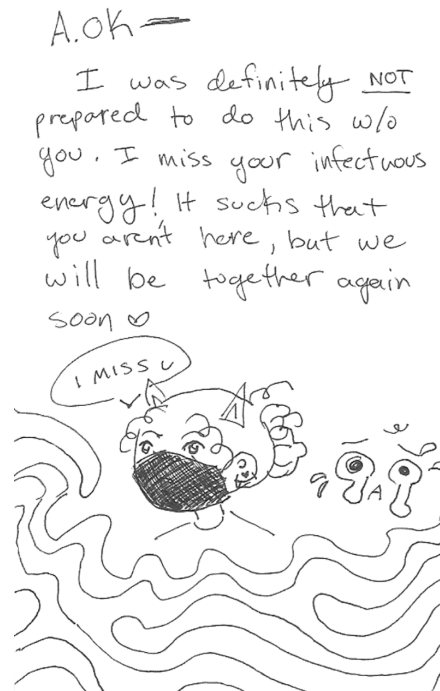 A.OK —
I was definitely NOT
prepared to do this w/o
you. I miss your infectuous
energy! It sucks that
you aren't here, but we
will be together again
soon ♡
I MISS U